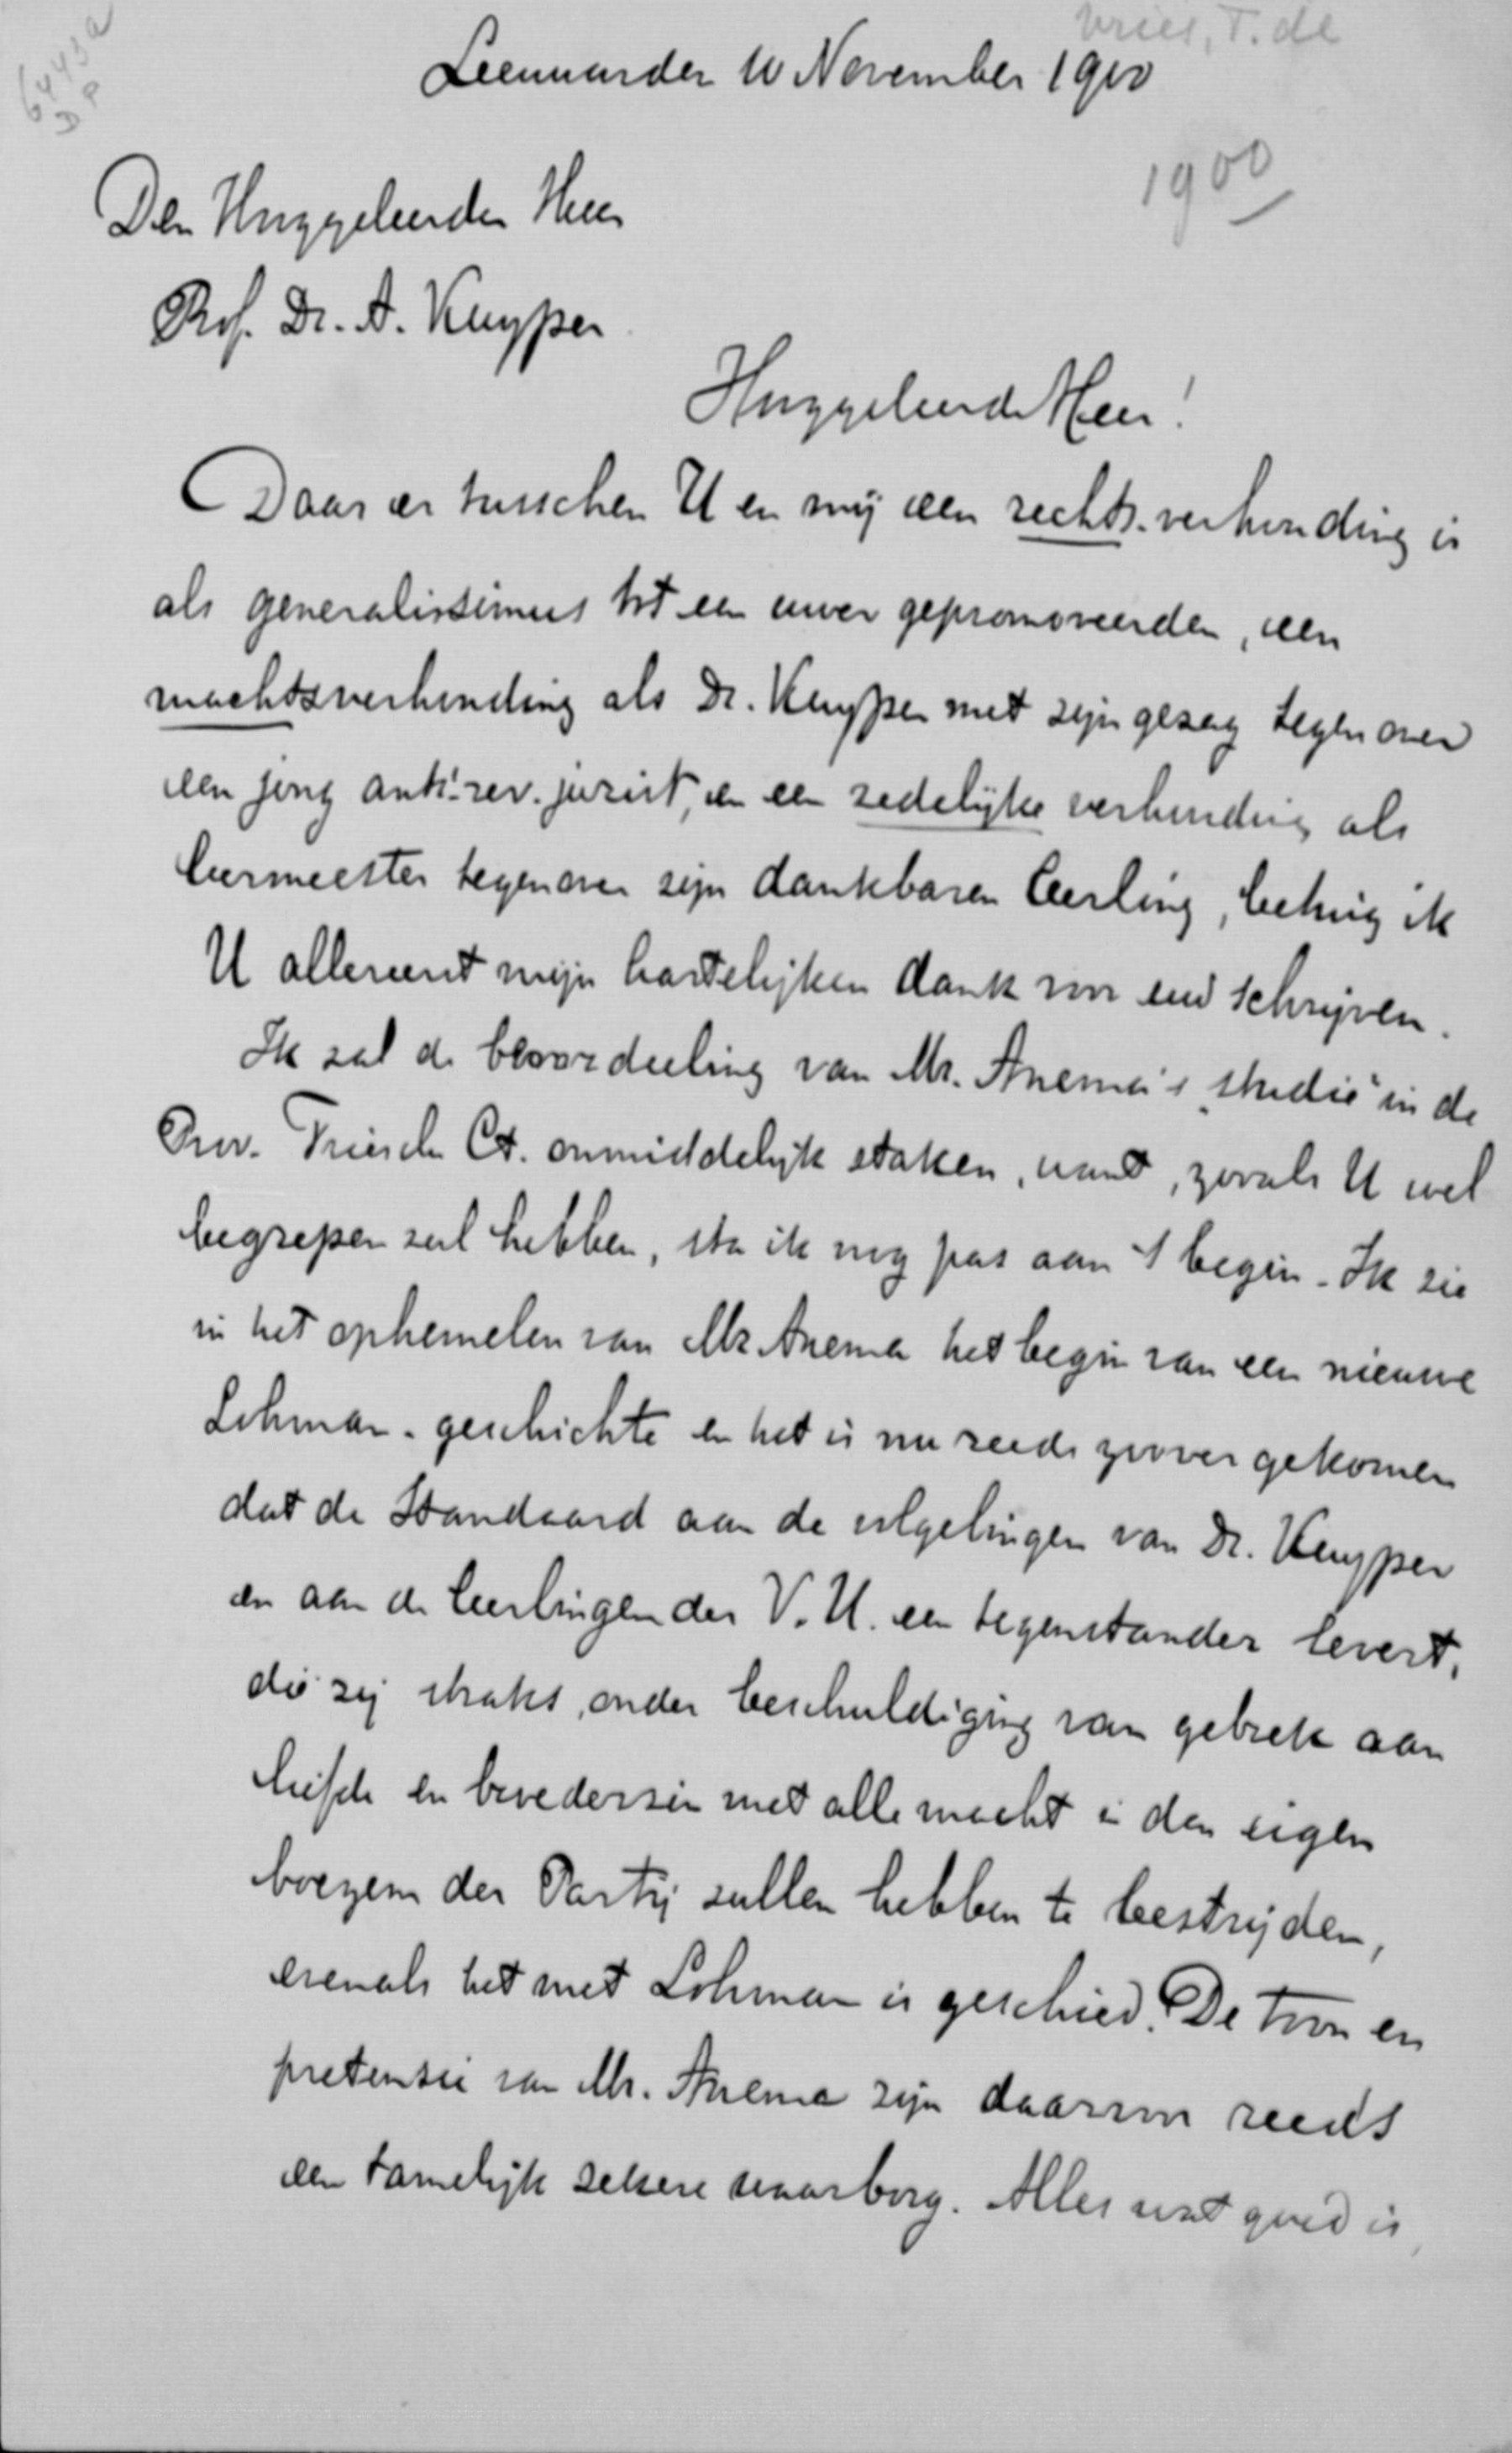 Vries, T. de
6443a
DP
Leeuwarden 10 November 1900
1900
Den Hooggeleerden Heer
Prof. Dr. A. Kuyper
Hooggeleerde Heer!
Daar er tusschen U en mij een rechts-verhouding is
als generalissimus tot een uwer gepromoveerden, een
machtsverhouding als Dr. Kuyper met zijn gezag tegenover
een jong anti-rev. jurist, en een zedelijke verhouding als
leermeester tegenover zijn dankbaren leerling, betuig ik
U allereerst mijn hartelijken dank voor uw schrijven.
Ik zal de beoordeeling van Mr. Anema's „studie" in de
Prov. Friesche Ct. onmiddelijk staken, want, zooals U wel
begrepen zul hebben, sta ik nog pas aan 't begin. Ik zie
in het ophemelen van Mr. Anema het begin van een nieuwe
Lohman-geschichte en het is nu reeds zoover gekomen
dat de Standaard aan de volgelingen van Dr. Kuyper
en aan de leerlingen der V.U. een tegenstander levert,
die zij straks, onder beschuldiging van gebrek aan
liefde en broederzin met alle macht in den eigen
boezem der Partij zullen hebben te bestrijden,
evenals het met Lohman is geschied. De toon en
pretensie van Mr. Anema zijn daarvoor reeds
een tamelijk zekere waarborg. Alles wat goed is,